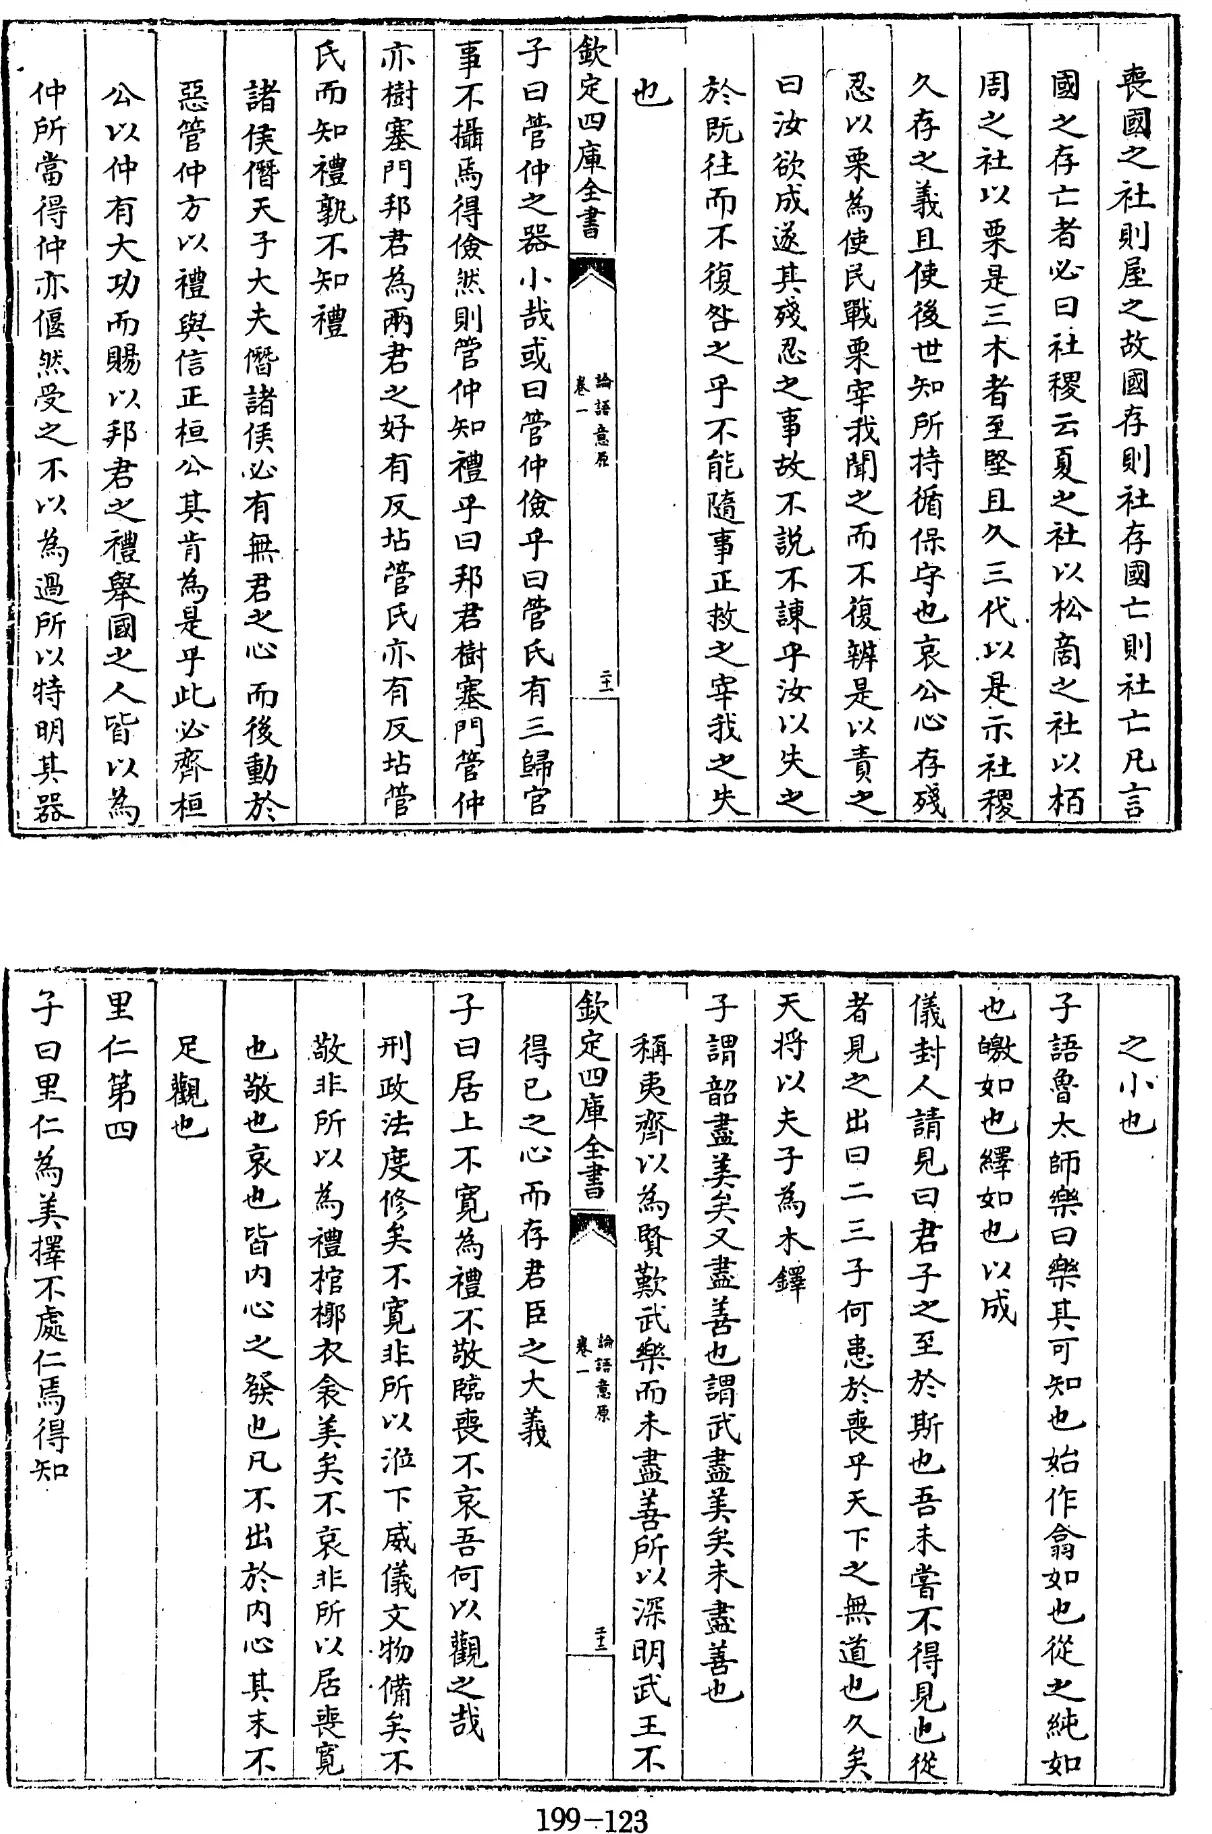 喪國之社則屋之故國存則社存國亡則社亡凡言
國之存亡者必曰社稷云夏之社以松啇之社以栢
周之社以栗是三木者至堅且久三代以是示社稷
久存之義且使後世知所持循保守也哀公心存殘
忍以栗為使民戰栗宰我聞之而不復辨是以責之
曰汝欲成遂其殘忍之事故不説不諫乎汝以失之
於既往而不復咎之乎不能隨事正救之宰我之失
也
欽定四庫全書
論語意原
卷一
二十一
子曰管仲之器小哉或曰管仲儉乎曰管氏有三歸官
事不攝焉得儉然則管仲知禮乎曰邦君樹塞門管仲
亦樹塞門邦君為兩君之好有反坫管氏亦有反坫管
氏而知禮孰不知禮
諸侯僭天子大夫僭諸侯必有無君之心而後動於
惡管仲方以禮與信正桓公其肯為是乎此必齊桓
公以仲有大功而賜以邦君之禮舉國之人皆以為
仲所當得仲亦偃然受之不以為過所以特明其器
之小也
子語魯太師樂曰樂其可知也始作翕如也從之純如
也皦如也繹如也以成
儀封人請見曰君子之至於斯也吾未嘗不得見也從
者見之出曰二三子何患於喪乎天下之無道也久矣
天將以夫子為木鐸
子謂韶盡美矣又盡善也謂武盡美矣未盡善也
稱夷齊以為賢歎武樂而未盡善所以深明武王不
欽定四庫全書
論語意原
卷一
二十二
得已之心而存君臣之大義
子曰居上不寛為禮不敬臨喪不哀吾何以觀之哉
刑政法度修矣不寛非所以涖下威儀文物備矣不
敬非所以為禮棺槨衣衾美矣不哀非所以居喪寛
也敬也哀也皆内心之發也凡不出於内心其末不
足觀也
里仁第四
子曰里仁為美擇不處仁焉得知
199-123